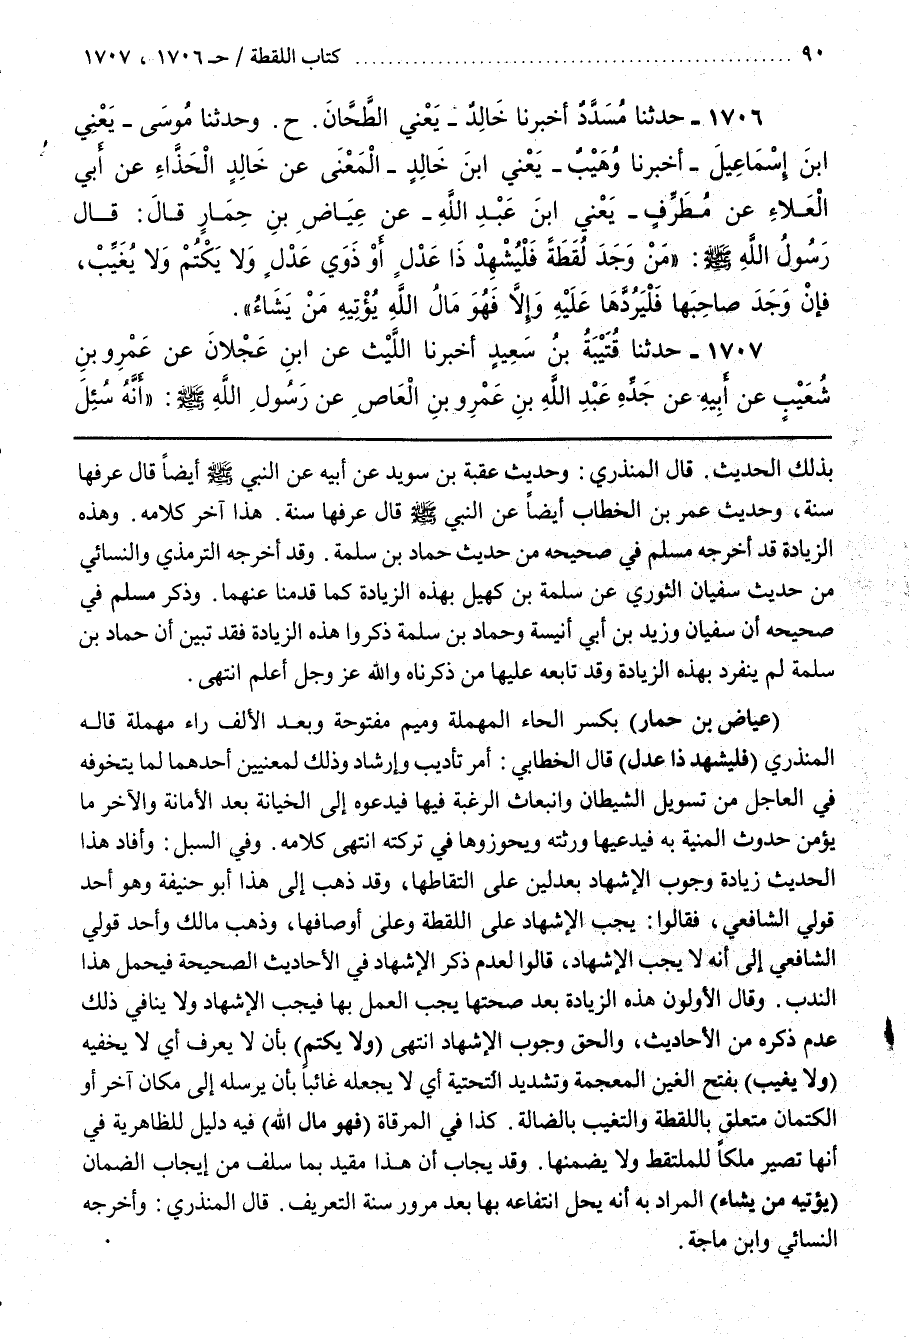 ٩٠ ........................................ كتاب اللقطة / حـ ١٧٠٦ ، ١٧٠٧
١٧٠٦ ـ حدثنا مُسَدَّدٌ أخبرنا خَالِدٌ ـ يَعْني الطَّحَّانَ. ح. وحدثنا مُوسَى ـ يَعْنِي
ابنَ إِسْمَاعِيلَ ـ أخبرنا وُهَيْبٌ ـ يَعْنِي ابنَ خَالِدٍ ـ الْمَعْنَى عن خَالِدٍ الْحَذَّاءِ عن أبي
الْعَلاءِ عن مُطَرِّفٍ ـ يَعْنِي ابنَ عَبْدِ اللَّهِ ـ عن عِيَاضِ بنِ حِمَارٍ قالَ: قالَ
رَسُولُ اللَّهِ ﷺ: «مَنْ وَجَدَ لُقَطَةً فَلْيُشْهِدْ ذَا عَدْلٍ أَوْ ذَوَي عَدْلٍ وَلا يَكْتُمْ وَلا يُغَيِّبْ،
فإنْ وَجَدَ صاحِبَها فَلْيَرُدَّهَا عَلَيْهِ وَإلَّا فَهُوَ مَالُ اللَّهِ يُؤْتِيهِ مَنْ يَشَاءُ».
١٧٠٧ ـ حدثنا قُتَيْبَةُ بنُ سَعِيدٍ أخبرنا اللَّيْث عن ابنِ عَجْلانَ عن عَمْرِو بنِ
شُعَيْبٍ عن أَبِيهِ عن جَدِّهِ عَبْدِ اللَّهِ بنِ عَمْرِو بنِ الْعَاصِ عن رَسُولِ اللَّهِ ﷺ: «أَنَّهُ سُئِلَ
بذلك الحديث. قال المنذري: وحديث عقبة بن سويد عن أبيه عن النبي ﷺ أيضاً قال عرفها
سنة، وحديث عمر بن الخطاب أيضاً عن النبي ﷺ قال عرفها سنة. هذا آخر كلامه. وهذه
الزيادة قد أخرجه مسلم في صحيحه من حديث حماد بن سلمة. وقد أخرجه الترمذي والنسائي
من حديث سفيان الثوري عن سلمة بن كهيل بهذه الزيادة كما قدمنا عنهما. وذكر مسلم في
صحيحه أن سفيان وزيد بن أبي أنيسة وحماد بن سلمة ذكروا هذه الزيادة فقد تبين أن حماد بن
سلمة لم ينفرد بهذه الزيادة وقد تابعه عليها من ذكرناه والله عز وجل أعلم انتهى.
(عياض بن حمار) بكسر الحاء المهملة وميم مفتوحة وبعد الألف راء مهملة قاله
المنذري (فليشهد ذا عدل) قال الخطابي: أمر تأديب وإرشاد وذلك لمعنيين أحدهما لما يتخوفه
في العاجل من تسويل الشيطان وانبعاث الرغبة فيها فيدعوه إلى الخيانة بعد الأمانة والآخر ما
يؤمن حدوث المنية به فيدعيها ورثته ويحوزوها في تركته انتهى كلامه. وفي السبل: وأفاد هذا
الحديث زيادة وجوب الإشهاد بعدلين على التقاطها، وقد ذهب إلى هذا أبو حنيفة وهو أحد
قولي الشافعي، فقالوا: يجب الإشهاد على اللقطة وعلى أوصافها، وذهب مالك وأحد قولي
الشافعي إلى أنه لا يجب الإشهاد، قالوا لعدم ذكر الإشهاد في الأحاديث الصحيحة فيحمل هذا
الندب. وقال الأولون هذه الزيادة بعد صحتها يجب العمل بها فيجب الإشهاد ولا ينافي ذلك
عدم ذكره من الأحاديث، والحق وجوب الإشهاد انتهى (ولا يكتم) بأن لا يعرف أي لا يخفيه
(ولا يغيب) بفتح الغين المعجمة وتشديد التحتية أي لا يجعله غائباً بأن يرسله إلى مكان آخر أو
الكتمان متعلق باللقطة والتغيب بالضالة. كذا في المرقاة (فهو مال الله) فيه دليل للظاهرية في
أنها تصير ملكاً للملتقط ولا يضمنها. وقد يجاب أن هذا مقيد بما سلف من إيجاب الضمان
(يؤتيه من يشاء) المراد به أنه يحل انتفاعه بها بعد مرور سنة التعريف. قال المنذري: وأخرجه
النسائي وابن ماجة.